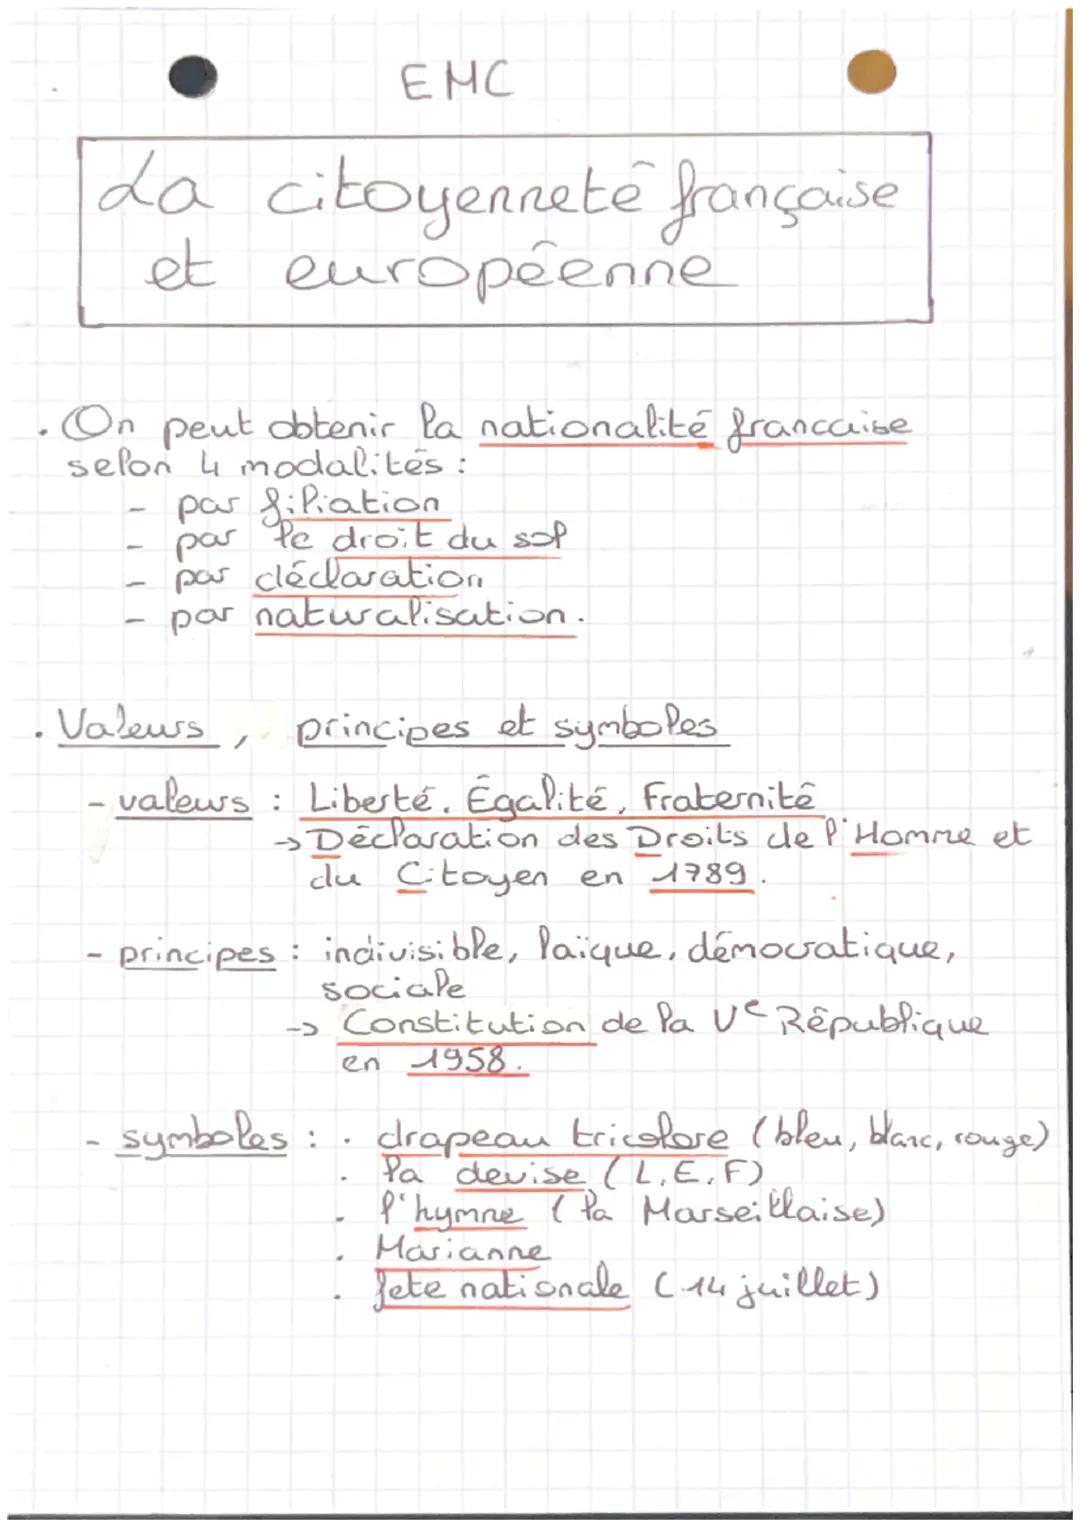 EMC
La citoyenneté française
et européenne
. On peut obtenir la nationalité francaise
selon 4 modalités :
- par filiation
- par le droit du sol
- par déclaration
- par naturalisation.
. Valeurs, principes et symboles
- valeurs : Liberté, Égalité, Fraternité
-> Déclaration des Droits de l'Homme et
du Citoyen en 1789.
- principes : indivisible, laïque, démocratique,
sociale
-> Constitution de la Ve République
en 1958.
- symboles : . drapeau tricolore (bleu, blanc, rouge)
. la devise (L.E.F)
. l'hymne (la Marseillaise)
. Marianne
. fete nationale (14 juillet)